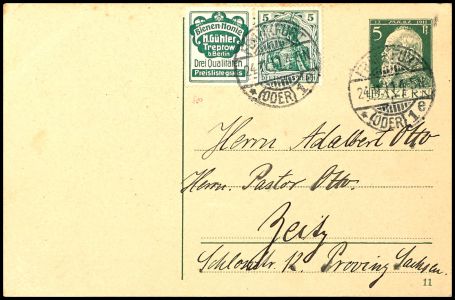 Bienen-Honig
H. Gühler,
Treptow
a. Berlin
Drei Qualitäten
Preisliste gratis
5 5
FRANKFURT
(ODER) 1
5 Pf
FRANKFURT
(ODER) 1e
BAYERN
Herrn Adalbert Otto
Herrn Pastor Otto.
Zeitz
Schlossstr. 12. Provinz Sachsen.
11